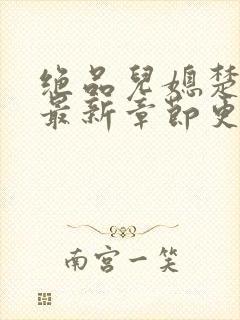 绝品儿媳楚
最新章节更
南宫一笑